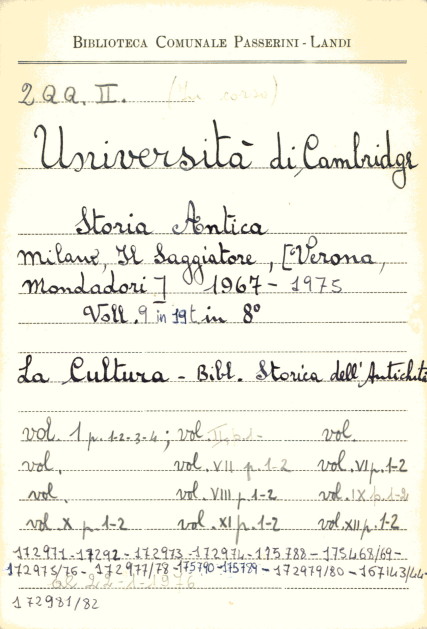 BIBLIOTECA COMUNALE PASSERINI - LANDI
2QQ. II. (In corso)
Università di Cambridge
Storia Antica
Milano, Il Saggiatore, [Verona,
Mondadori] 1967 - 1975
Voll. 9 in 19t in 8º
La Cultura - Bibl. Storica dell'Antichità
vol. 1 p. 1-2-3-4; vol. II, p. 1- vol.
vol. vol. VII p. 1-2 vol. VI p. 1-2
vol. vol. VIII p. 1-2 vol. IX p. 1-2
vol. X p. 1-2 vol. XI p. 1-2 vol. XII p. 1-2
172971 - 17292 - 172973 - 172974 - 175788 - 175468/69 -
172975/76 - 172977/78 - 175790 - 175789 - 172979/80 - 167143/44-
al 22-1-1976
172981/82